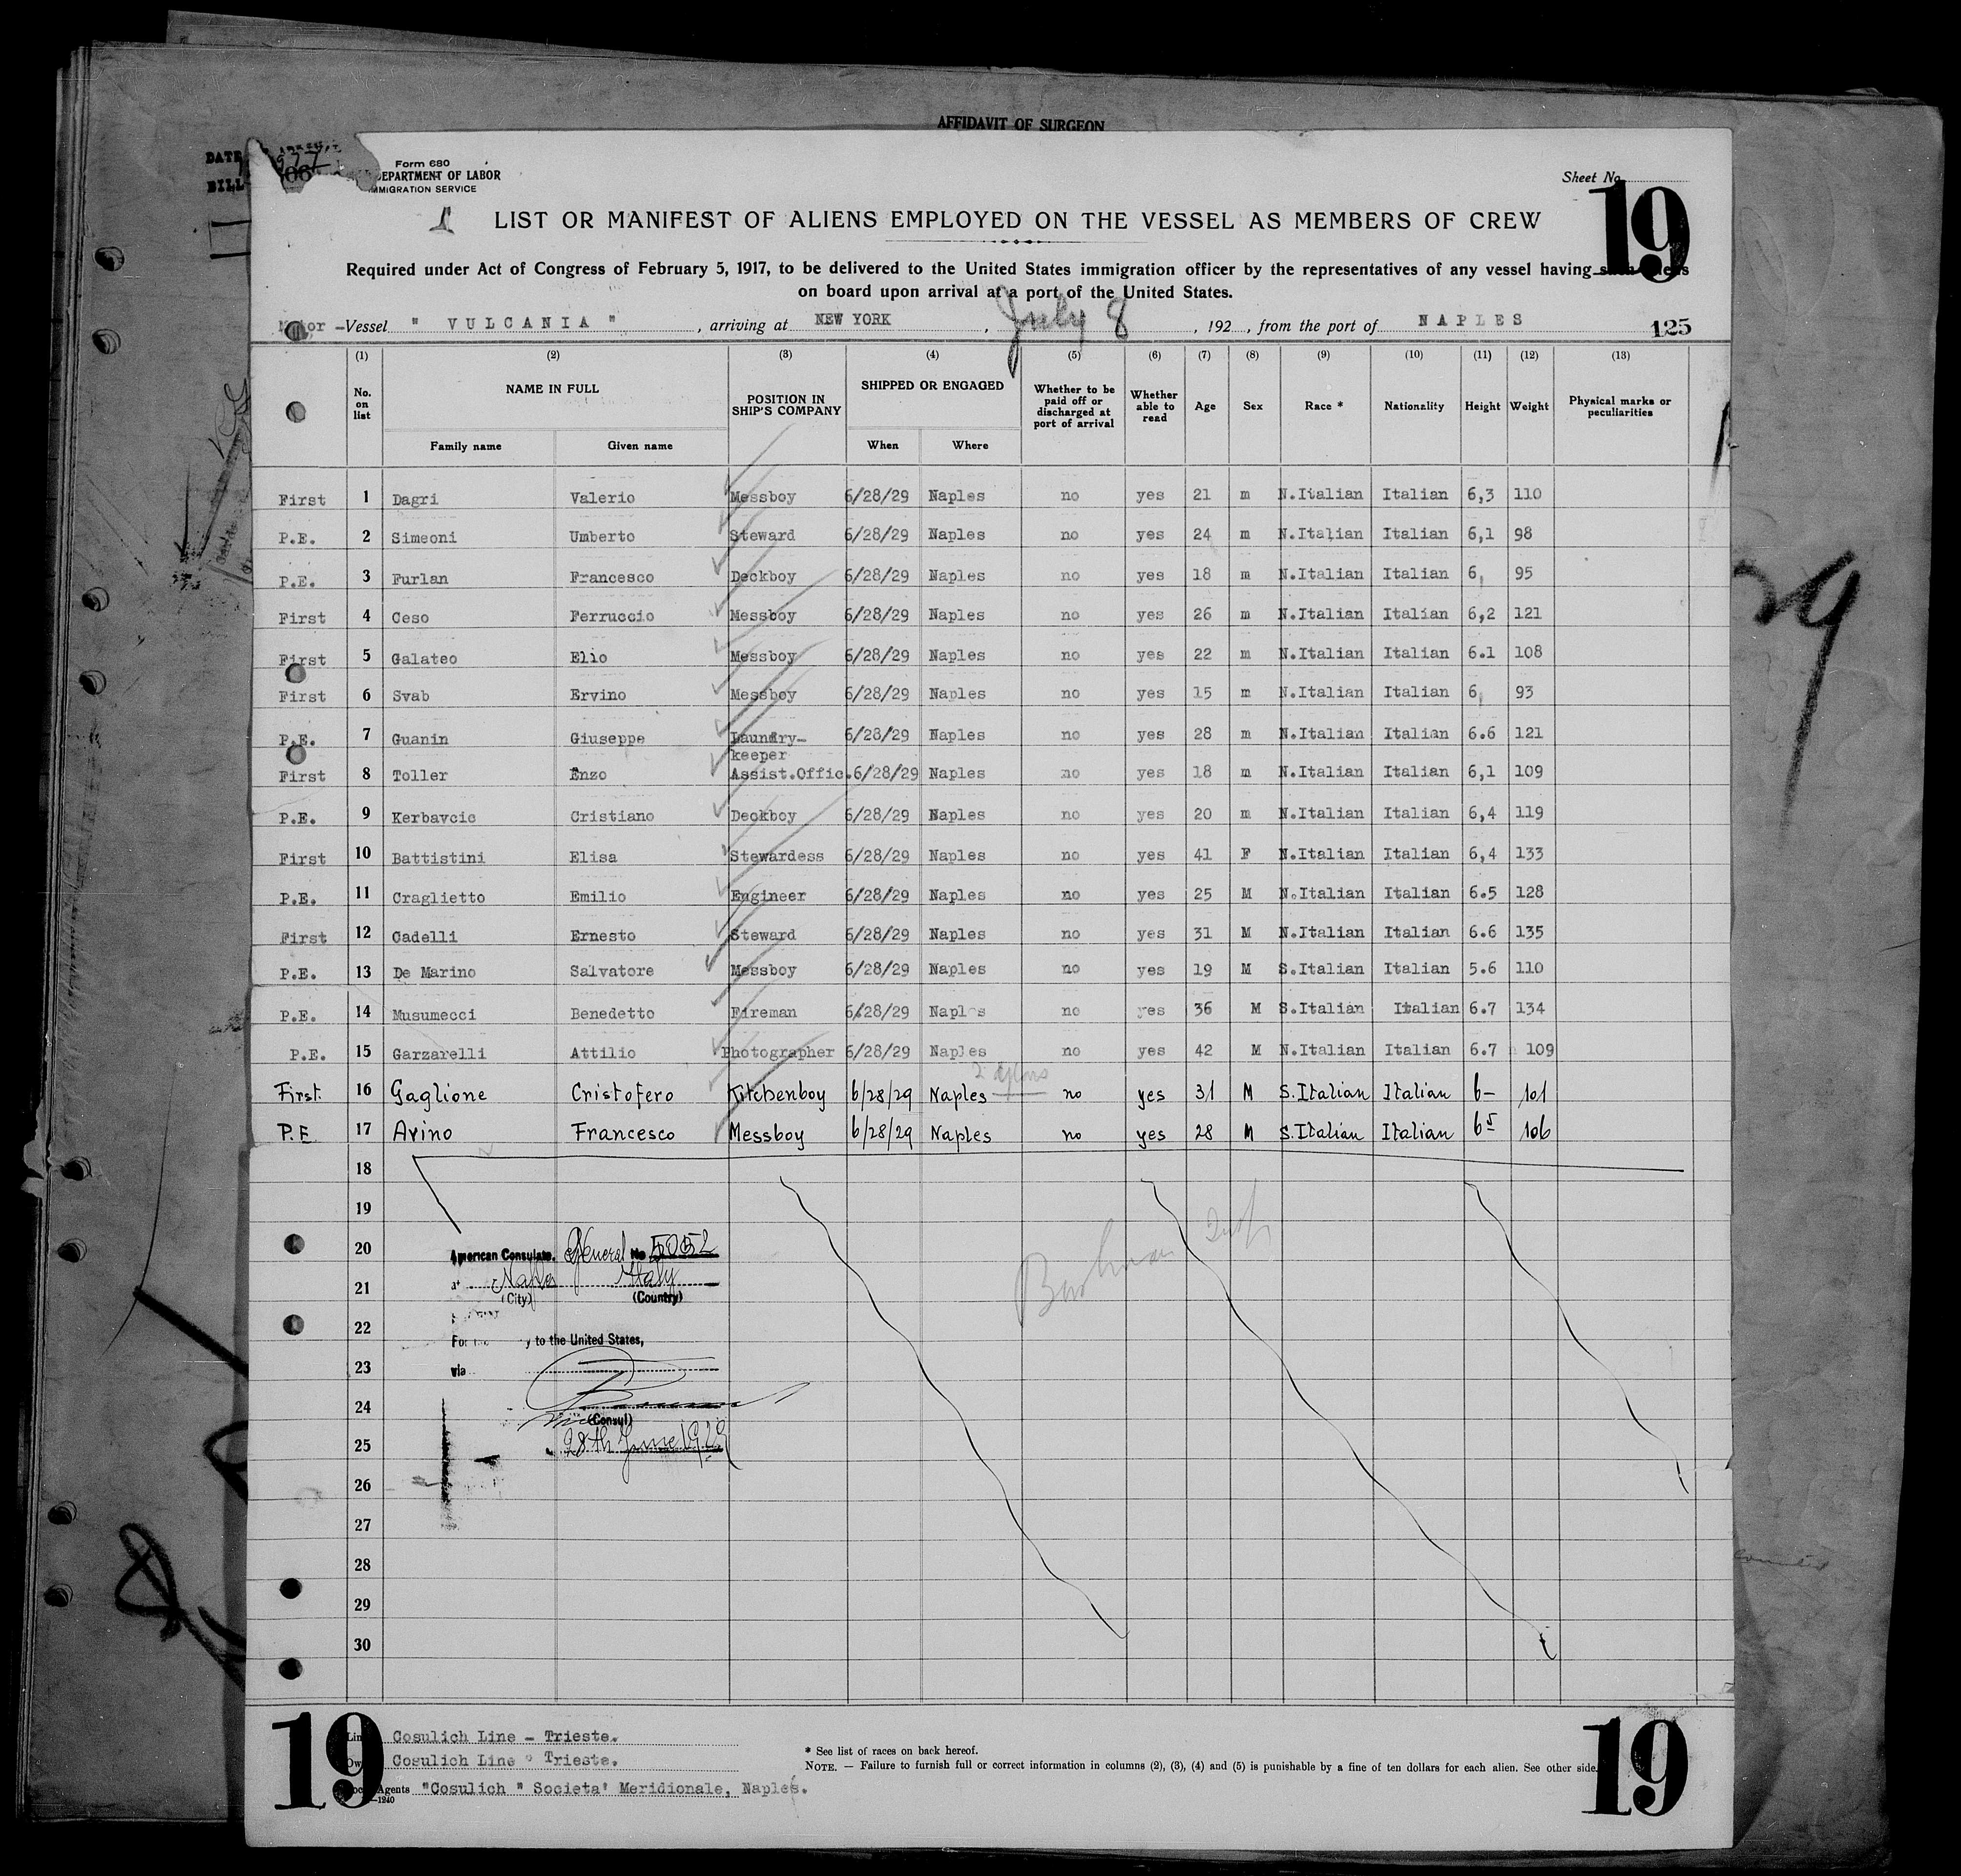 AFFIDAVIT OF SURGEON
DATE
BILL
Form 680
DEPARTMENT OF LABOR
IMMIGRATION SERVICE
Sheet No.
19
LIST OR MANIFEST OF ALIENS EMPLOYED ON THE VESSEL AS MEMBERS OF CREW
Required under Act of Congress of February 5, 1917, to be delivered to the United States immigration officer by the representatives of any vessel having such aliens
on board upon arrival at a port of the United States.
Motor -Vessel " VULCANIA ", arriving at NEW YORK, July 8, 192 , from the port of NAPLES 125
(1) (2) (3) (4) (5) (6) (7) (8) (9) (10) (11) (12) (13)
No. on list NAME IN FULL POSITION IN SHIP'S COMPANY SHIPPED OR ENGAGED Whether to be paid off or discharged at port of arrival Whether able to read Age Sex Race * Nationality Height Weight Physical marks or peculiarities
Family name Given name When Where
First 1 Dagri Valerio Messboy 6/28/29 Naples no yes 21 m N.Italian Italian 6,3 110
P.E. 2 Simeoni Umberto Steward 6/28/29 Naples no yes 24 m N.Italian Italian 6,1 98
P.E. 3 Furlan Francesco Deckboy 6/28/29 Naples no yes 18 m N.Italian Italian 6, 95
First 4 Ceso Ferruccio Messboy 6/28/29 Naples no yes 26 m N.Italian Italian 6,2 121
First 5 Galateo Elio Messboy 6/28/29 Naples no yes 22 m N.Italian Italian 6.1 108
First 6 Svab Ervino Messboy 6/28/29 Naples no yes 15 m N.Italian Italian 6, 93
P.E. 7 Guanin Giuseppe Laundry- 6/28/29 Naples no yes 28 m N.Italian Italian 6.6 121
keeper
First 8 Toller Enzo Assist.Offic. 6/28/29 Naples no yes 18 m N.Italian Italian 6,1 109
P.E. 9 Kerbavcic Cristiano Deckboy 6/28/29 Naples no yes 20 m N.Italian Italian 6,4 119
First 10 Battistini Elisa Stewardess 6/28/29 Naples no yes 41 F N.Italian Italian 6,4 133
P.E. 11 Craglietto Emilio Engineer 6/28/29 Naples no yes 25 M N.Italian Italian 6.5 128
First 12 Cadelli Ernesto Steward 6/28/29 Naples no yes 31 M N.Italian Italian 6.6 135
P.E. 13 De Marino Salvatore Messboy 6/28/29 Naples no yes 19 M S.Italian Italian 5.6 110
P.E. 14 Musumecci Benedetto Fireman 6/28/29 Naples no yes 36 M S.Italian Italian 6.7 134
P.E. 15 Garzarelli Attilio Photographer 6/28/29 Naples no yes 42 M N.Italian Italian 6.7 109
First. 16 Gaglione Cristofero Kitchenboy 6/28/29 Naples no yes 31 M S.Italian Italian 6- 101
P.E 17 Avino Francesco Messboy 6/28/29 Naples no yes 28 M S.Italian Italian 6 5 106
18
19
20
American Consulate. General No 5052
21
at Naples Italy
(City) (Country)
22
For to the United States,
23
via
24
(Consul)
25
28th June 1929
26
27
28
29
30
19
Line Cosulich Line - Trieste.
Cosulich Line " Trieste.
Agents "Cosulich " Societa' Meridionale, Naples.
—1240
* See list of races on back hereof.
NOTE. — Failure to furnish full or correct information in columns (2), (3), (4) and (5) is punishable by a fine of ten dollars for each alien. See other side.
19